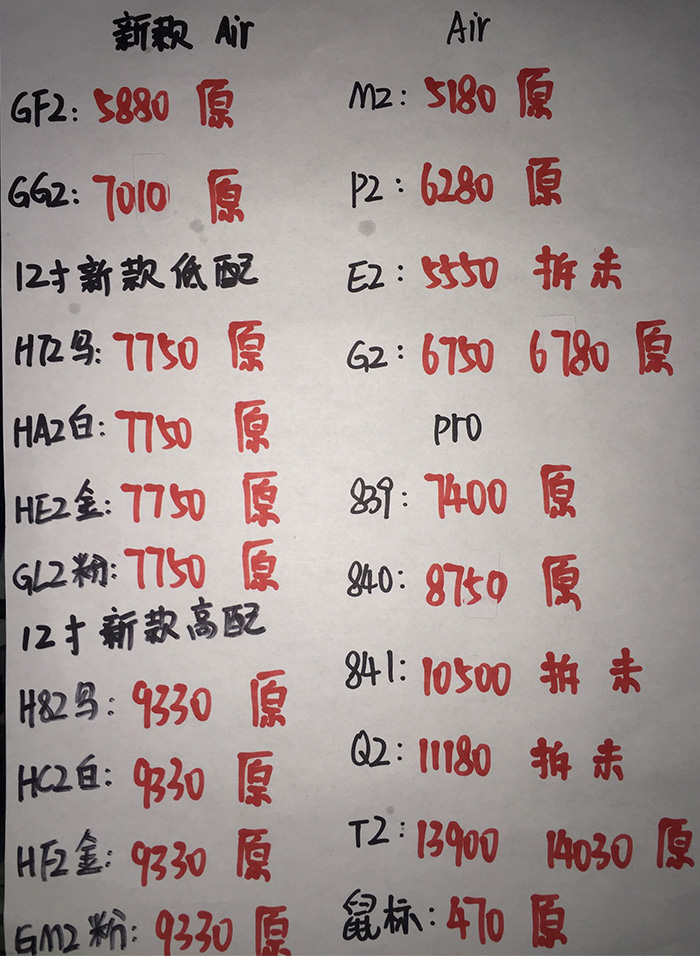 新款 Air
GF2: 5880 原
GG2: 7010 原
12寸新款低配
H72鸟: 7750 原
HA2白: 7750 原
HE2金: 7750 原
GL2粉: 7750 原
12寸新款高配
H82鸟: 9330 原
HC2白: 9330 原
HF2金: 9330 原
GM2粉: 9330 原
Air
M2: 5180 原
P2: 6280 原
E2: 5550 拆未
G2: 6750 6780 原
pro
839: 7400 原
840: 8750 原
841: 10500 拆未
Q2: 11180 拆未
T2: 13900 14030 原
鼠标: 470 原